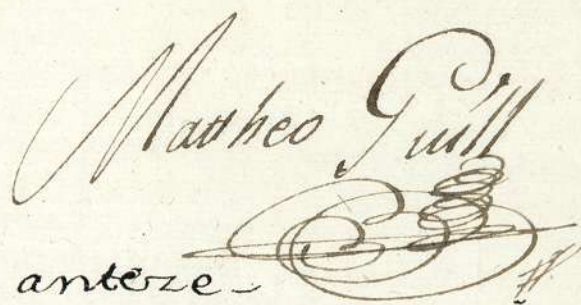 Mattheo Guill
anteze-